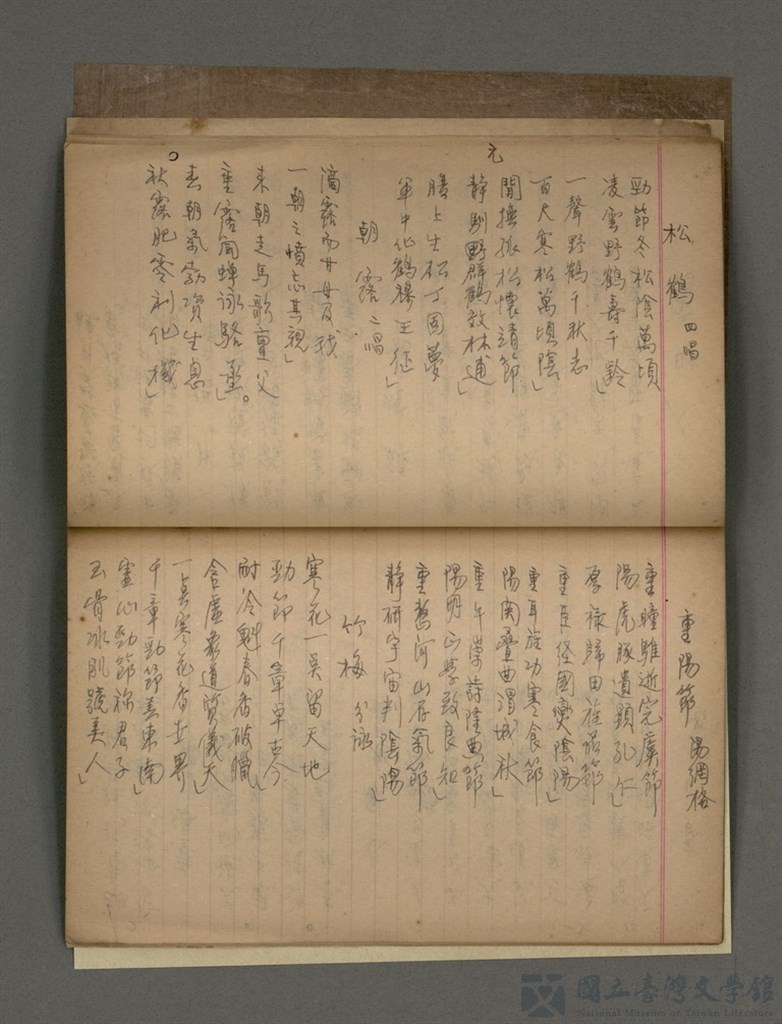 松鶴 四唱
勁節冬松陰萬頃
凌雲野鶴壽千齡」
一聲野鶴千秋志
百尺寒松萬頃陰」
元
閒撫孤松懷靖節
靜馴野群鶴效林逋」
腰上生松丁固夢
軍中化鶴穆王征」
朝露 二唱
一朝之憤忘其親」
來朝走馬歌亶父
重露聞蟬詠駱丞」。
春朝氣勃資生息
秋露肥零利化機」
重陽節 湯網格
重瞳騅逝完虞節
陽虎豚遺顯孔仁」
厚祿歸田旌品節
重臣經國燮陰陽」
重耳旌功寒食節
陽關疊曲渭城秋」
陽明正學致良知」
重整河山存氣節
靜研宇宙判陰陽」
竹梅 分詠
寒花一点留天地
勁節千章早古今
耐冷魁春香破臘」
含虛衆道質儀天」
一点寒花香世界
千章勁節美東南」
虛心勁節称君子
玉骨冰肌號美人」
國立臺灣文學館
National Museum of Taiwan Literature